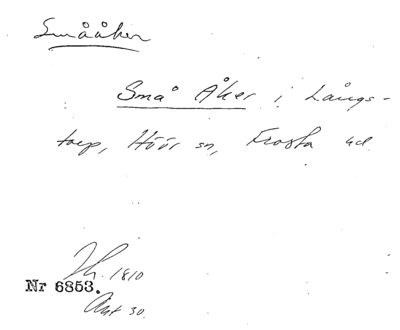 Smååker
Små Åker i Långs-
torp, Höör sn, Frosta hd
Th. 1810
Nr 6853.
Akt 30.